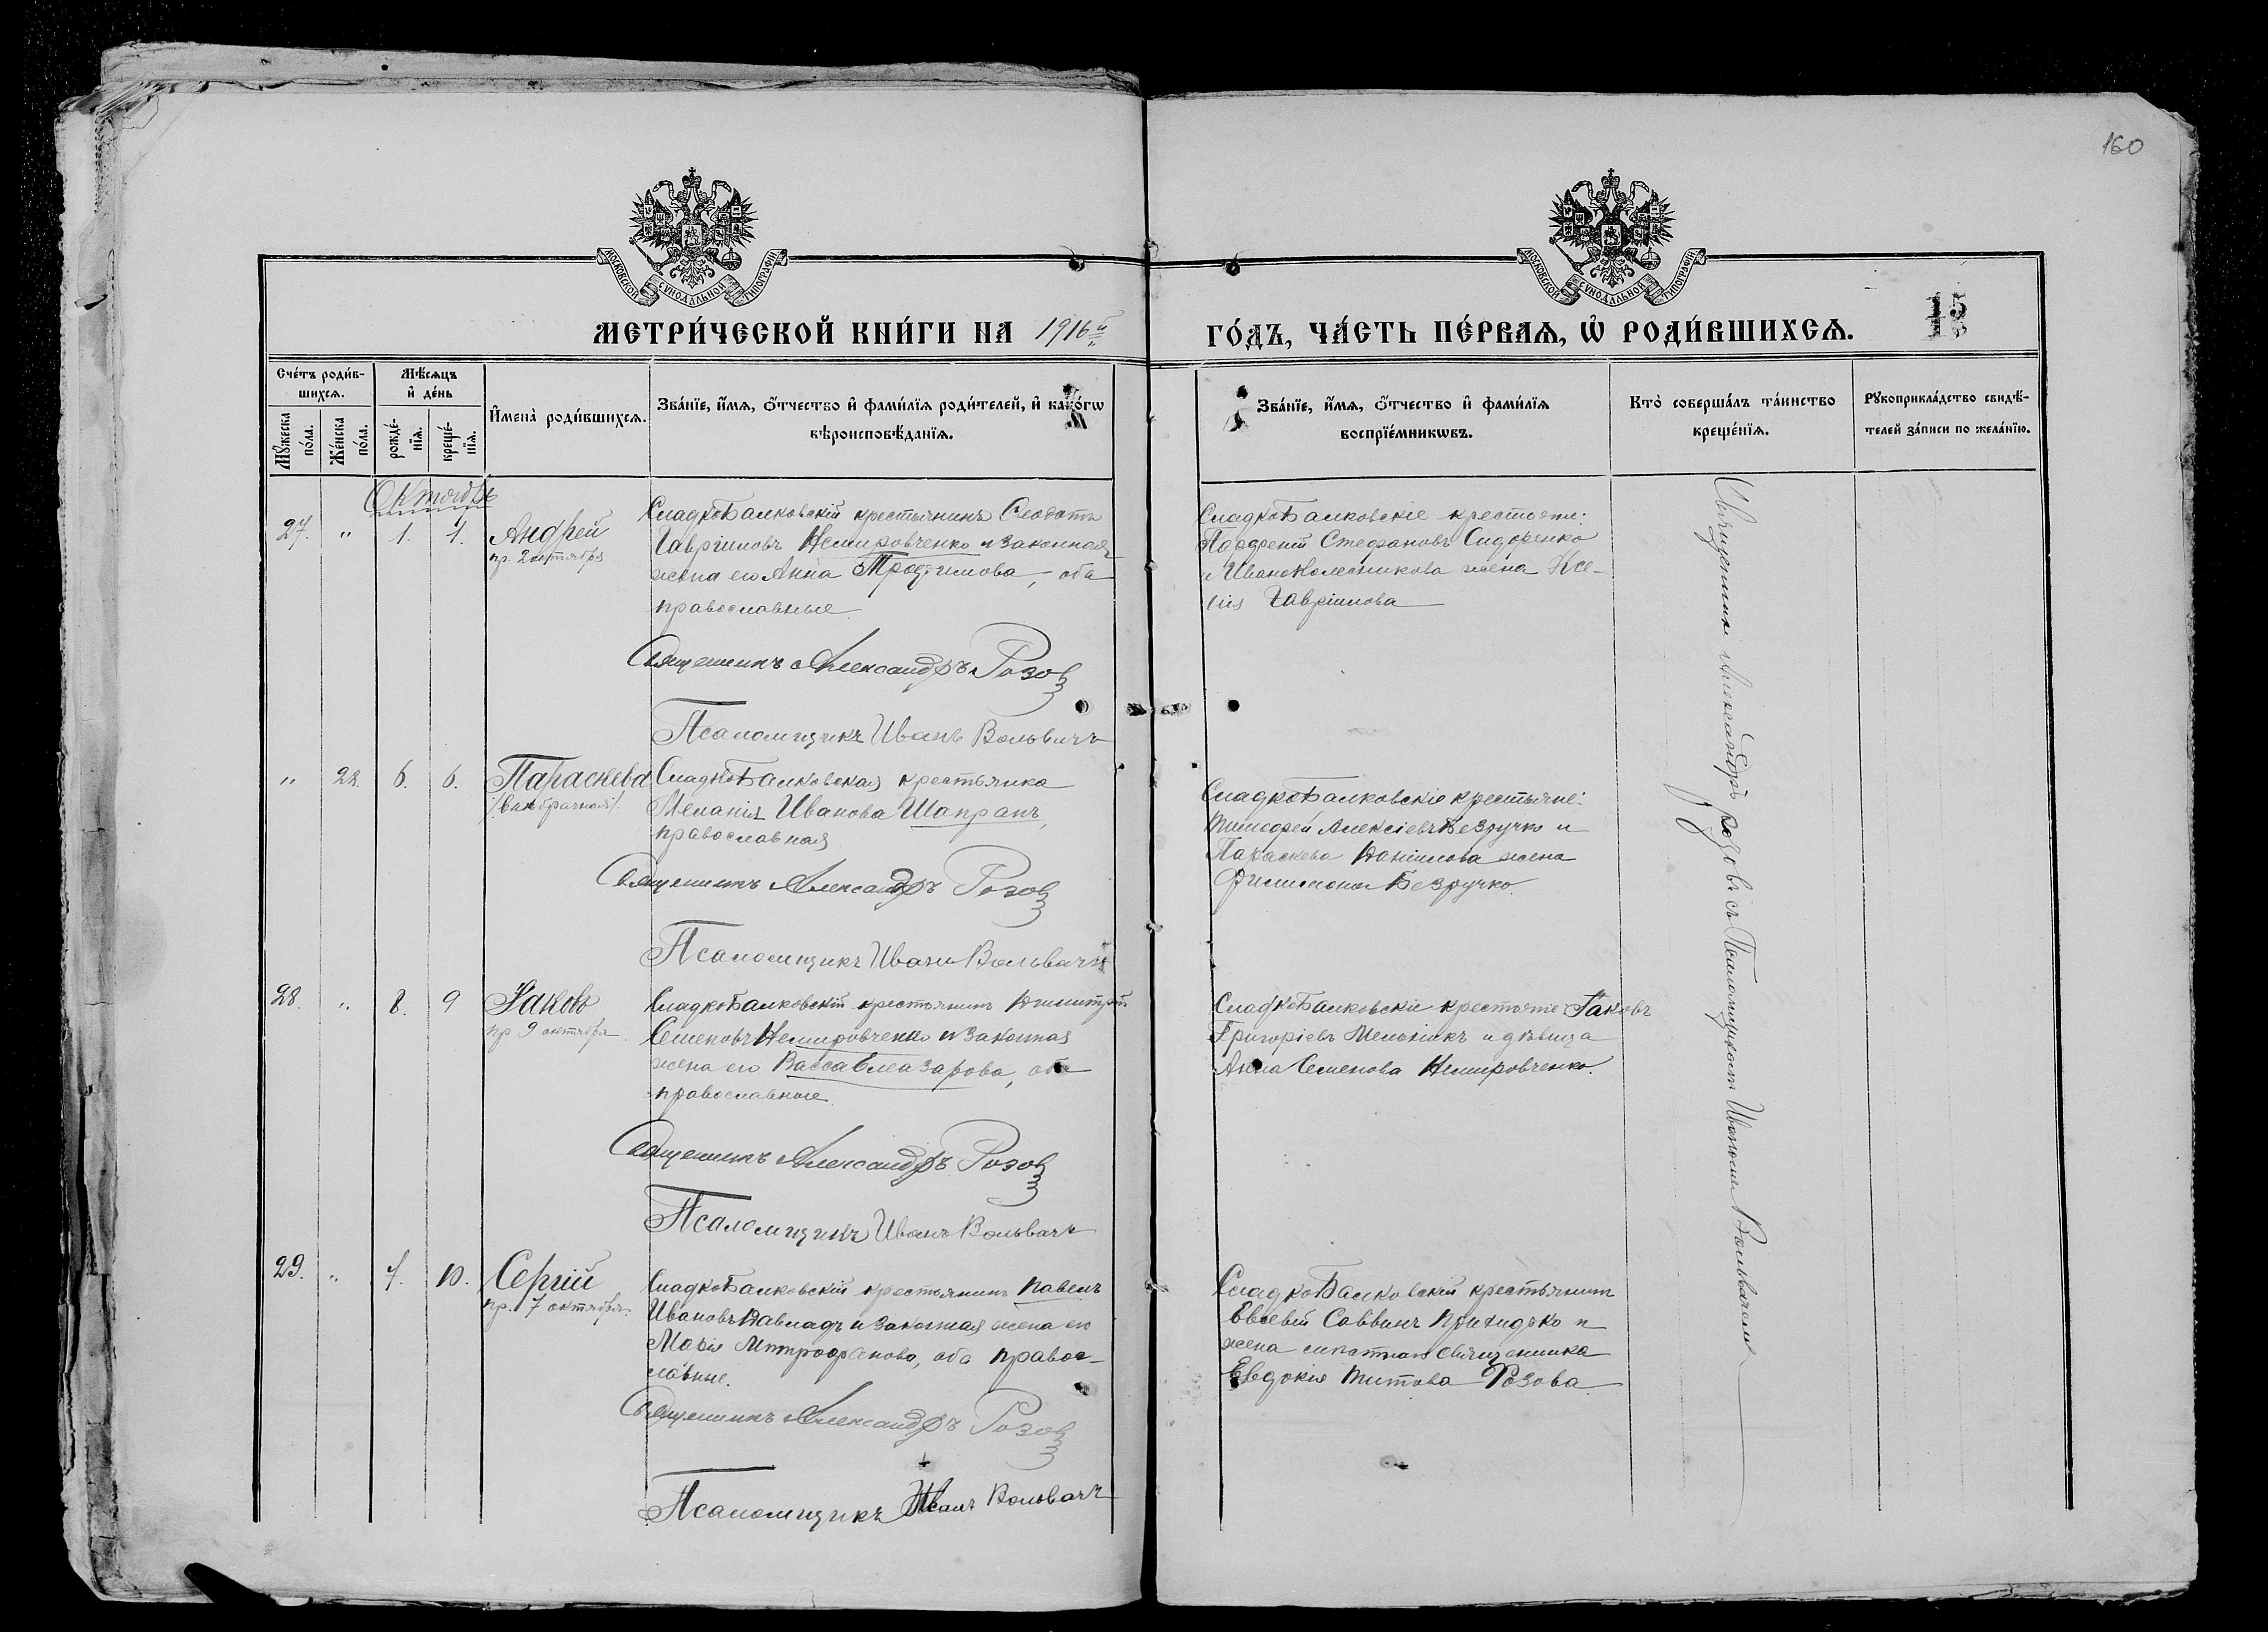 160
МОСКОВСКОЙ СѴНОДАЛЬНОЙ ТИПОГРАФІИ
МОСКОВСКОЙ СѴНОДАЛЬНОЙ ТИПОГРАФІИ
МЕТРИ́ЧЕСКОЙ КНИ́ГИ НА 1916й
ГО́ДЪ, ЧА́СТЬ ПЕ́РВАѦ, Ѡ҆ РОДИ́ВШИХСѦ.
15
Сче́тъ роди́в-
шихсѧ.
Мꙋ́жеска
по́ла.
Же́нска
по́ла.
Мѣ́сѧцъ
и҆ де́нь
рожде́-
нїѧ.
креще́-
нїѧ.
И҆мена̀ роди́вшихсѧ.
Зва́нїе, и҆́мѧ, ѻ҆́тчество и҆ фами́лїѧ роди́телей, и҆ како́гѡ
вѣроисповѣ́данїѧ.
Зва́нїе, и҆́мѧ, ѻ҆́тчество и҆ фами́лїѧ
воспрїе́мникѡвъ.
Кто̀ соверша́лъ та́инство
креще́нїѧ.
Рꙋкоприкла́дство свидѣ́-
телей за́писи по жела́нїю.
Октябрь
27. " 1. 1. Андрей
пр. 2 октября
СладкоБалковскій крестьянинъ Ѳеодотъ
Гавріиловъ Немировченко и законная
жена его Анна Трофимова, оба
православные
Священникъ Александръ Розов
Псаломщикъ Иванъ Вольвачъ
СладкоБалковскіе крестьяне:
Парфеній Стефановъ Сидоренко
и Ивана Колесникова жена Ксе-
нія Гавріилова
" 22. 6. 6. Параскева
/внѣбрачная/.
СладкоБалковская крестьянка
Меланія Иванова Шапранъ,
православная
Священникъ Александръ Розов
Псаломщикъ Иванъ Вольвачъ
СладкоБалковскіе крестьяне:
Тимофей Алексіевъ Безручко и
Параскева Даніилова жена
Филимона Безручко.
28. " 8. 9 Іаковъ
пр. 9 октября
СладкоБалковскій крестьянинъ Димитрій
Семеновъ Немировченко и законная
жена его Васса Елеазарова, оба
православные
Священникъ Александръ Розов
Псаломщикъ Иванъ Вольвачъ
СладкоБалковскіе крестьяне: Іаковъ
Григоріевъ Мельникъ и дѣвица
Анна Семенова Немировченко.
29. " 7. 10. Сергій
пр. 7 октября
СладкоБалковскій крестьянинъ Павелъ
Ивановъ Павладъ и законная жена его
Марія Митрофанова, оба правос-
лавные.
Священникъ Александръ Розов
Псаломщикъ Иванъ Вольвачъ
СладкоБалковскій крестьянинъ
Евсевій Саввинъ Приходько и
жена священника
Евдокія Титова Розова
Священникъ Александръ Розовъ съ Псаломщикомъ Иваномъ Вольвачемъ